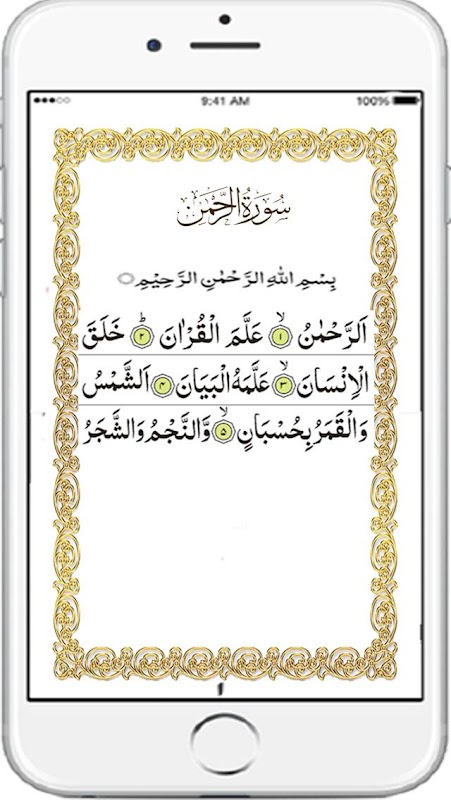 9:41 AM 100%
سُورَةُ الرَّحْمٰن
بِسْمِ اللّٰهِ الرَّحْمٰنِ الرَّحِيْمِ
اَلرَّحْمٰنُ ۙ‏﴿۱﴾ عَلَّمَ الْقُرْاٰنَ ؕ‏﴿۲﴾ خَلَقَ
الْاِنْسَانَ ۙ‏﴿۳﴾ عَلَّمَهُ الْبَيَانَ ﴿۴﴾ اَلشَّمْسُ
وَالْقَمَرُ بِحُسْبَانٍ ۙ‏﴿۵﴾ وَّالنَّجْمُ وَالشَّجَرُ